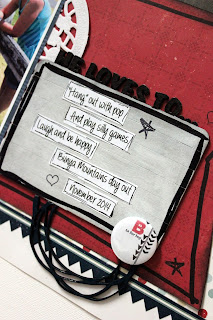 HE LOVES TO
"Hang" out with pop
And play silly games
Laugh and be happy!
Bunya Mountains day out
November 2014
B